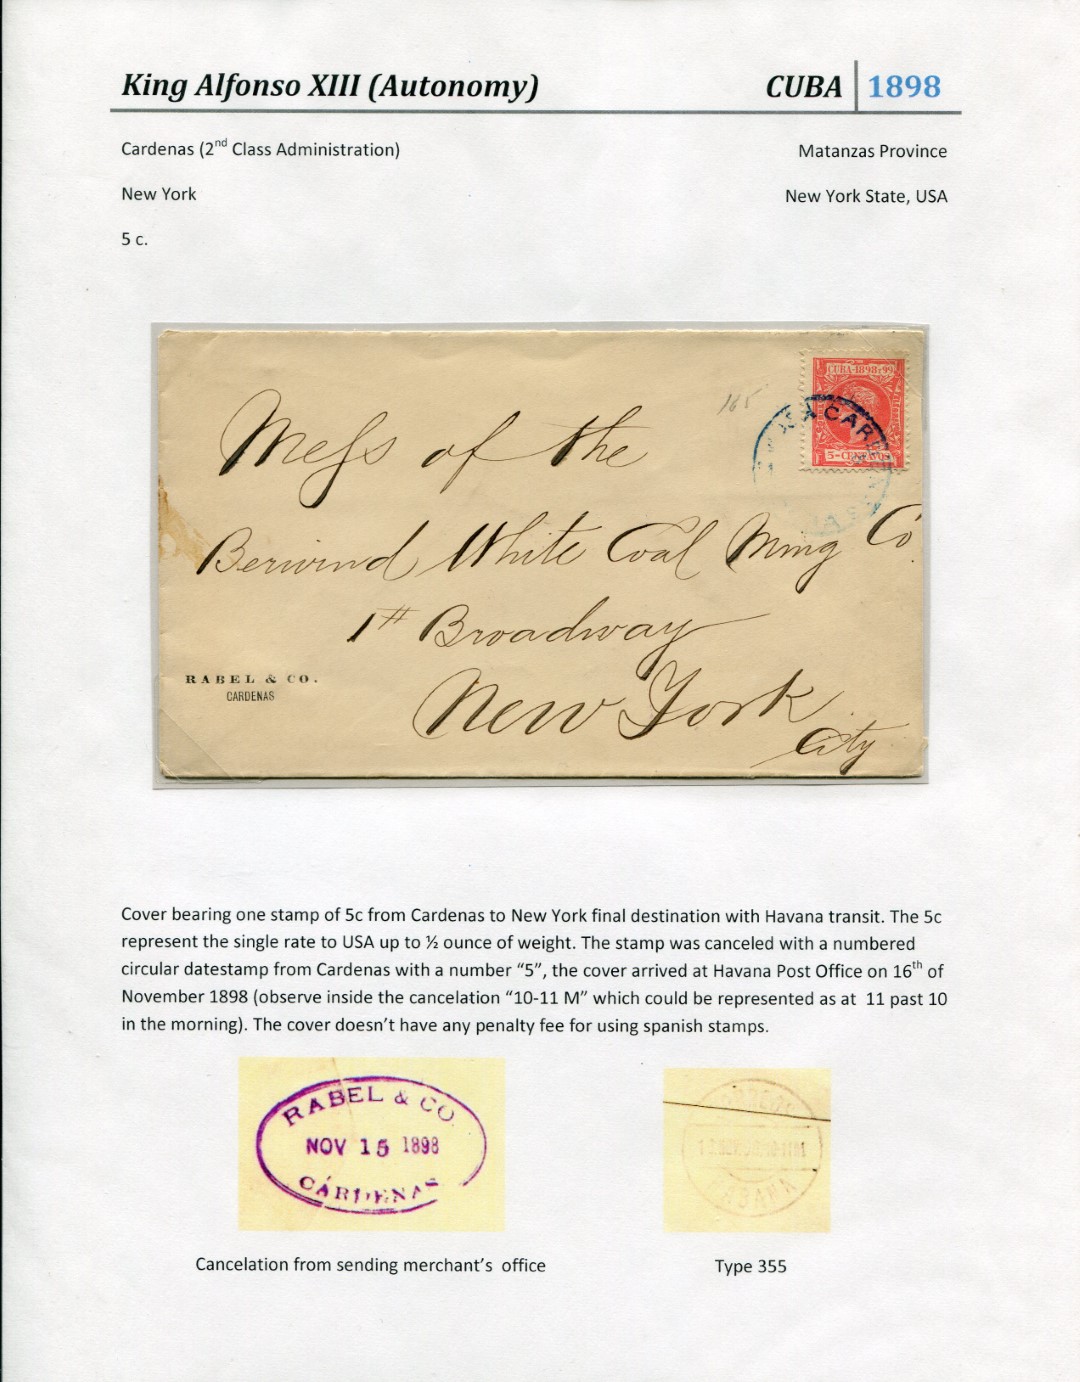 King Alfonso XIII (Autonomy) CUBA 1898
Cardenas (2nd Class Administration) Matanzas Province
New York New York State, USA
5 c.
165
CUBA·1898·99
CARDENAS
5-CENTAVOS
Mess of the
Berwind White Coal Mng Co
1# Broadway
New York
City
RABEL & CO.
CARDENAS
Cover bearing one stamp of 5c from Cardenas to New York final destination with Havana transit. The 5c
represent the single rate to USA up to ½ ounce of weight. The stamp was canceled with a numbered
circular datestamp from Cardenas with a number “5”, the cover arrived at Havana Post Office on 16th of
November 1898 (observe inside the cancelation “10-11 M” which could be represented as at 11 past 10
in the morning). The cover doesn’t have any penalty fee for using spanish stamps.
RABEL & CO.
NOV 15 1898
CÁRDENAS
CORREOS
HABANA
Cancelation from sending merchant’s office
Type 355